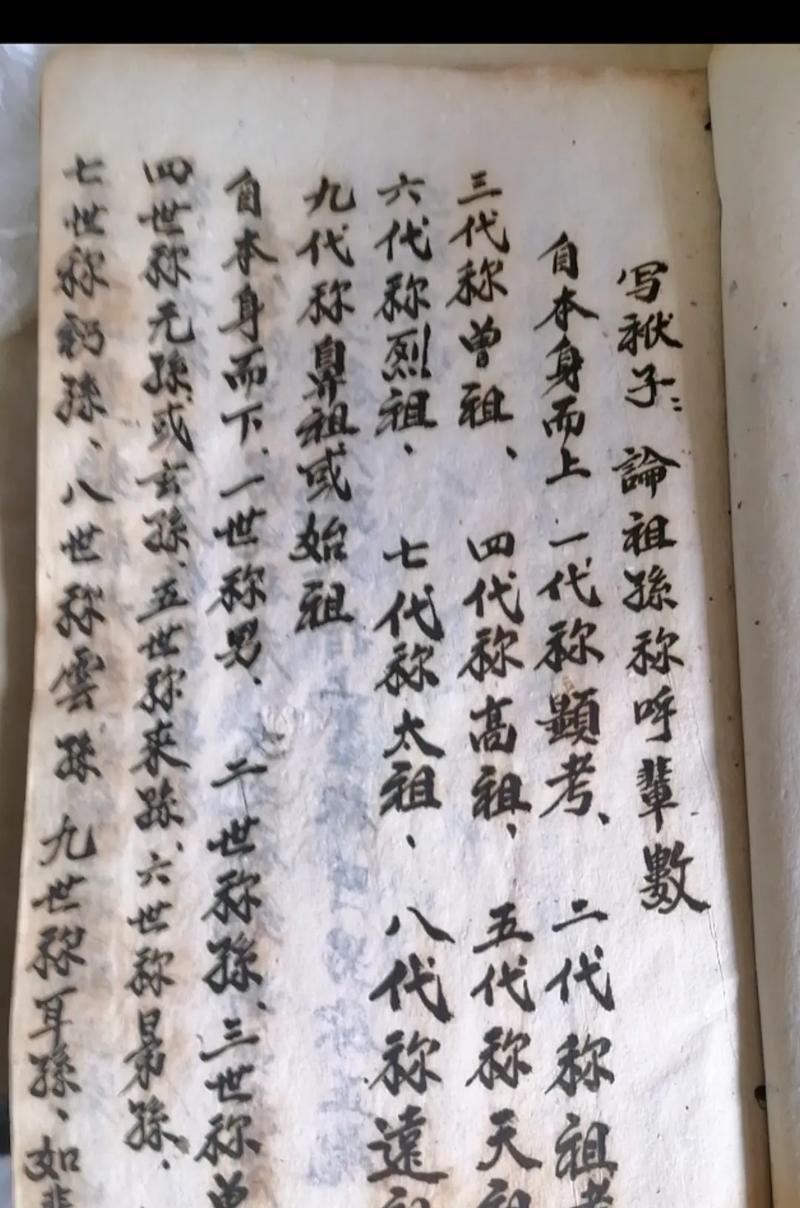 写袱子：論祖孫称呼輩數
自本身而上一代称顕考、二代称祖考
三代称曾祖、四代称高祖、五代称天祖
六代称烈祖、七代称太祖、八代称遠祖
九代称鼻祖或始祖
自本身而下、一世称男、二世称孫、三世称曾
四世称元孫、或玄孫、五世称来孫、六世称晜孫、
七世称礽孫、八世称雲孫 九世称耳孫、如